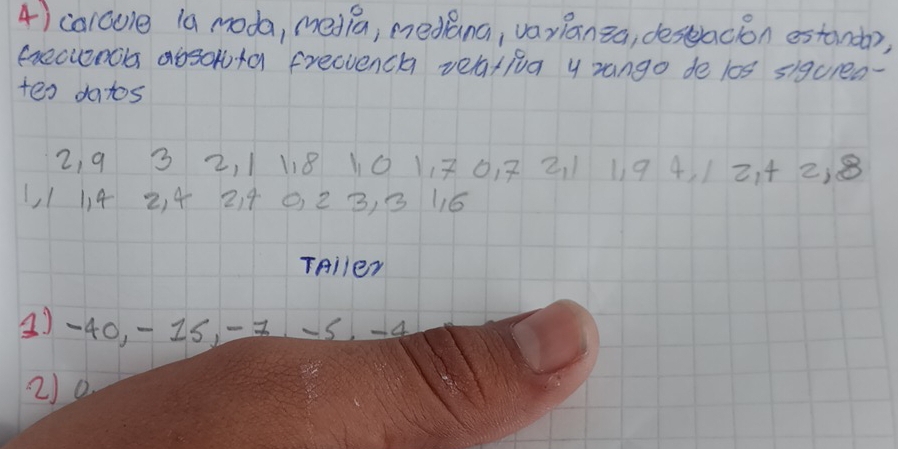 4) calcule la moda, media, mediana, varianza, desviación estandar,
frecuencia absoluta frecuencia relativa y rango de los siguien-
tes datos
2,9 3 2,1 1,8 1,0 1,7 0,7 2,1 1,9 4,1 2,4 2,8
1,1 1,4 2,4 2,4 0,2 3,3 1,6
TAller
1) -40, - 15, -7, -5, -4
2) 0